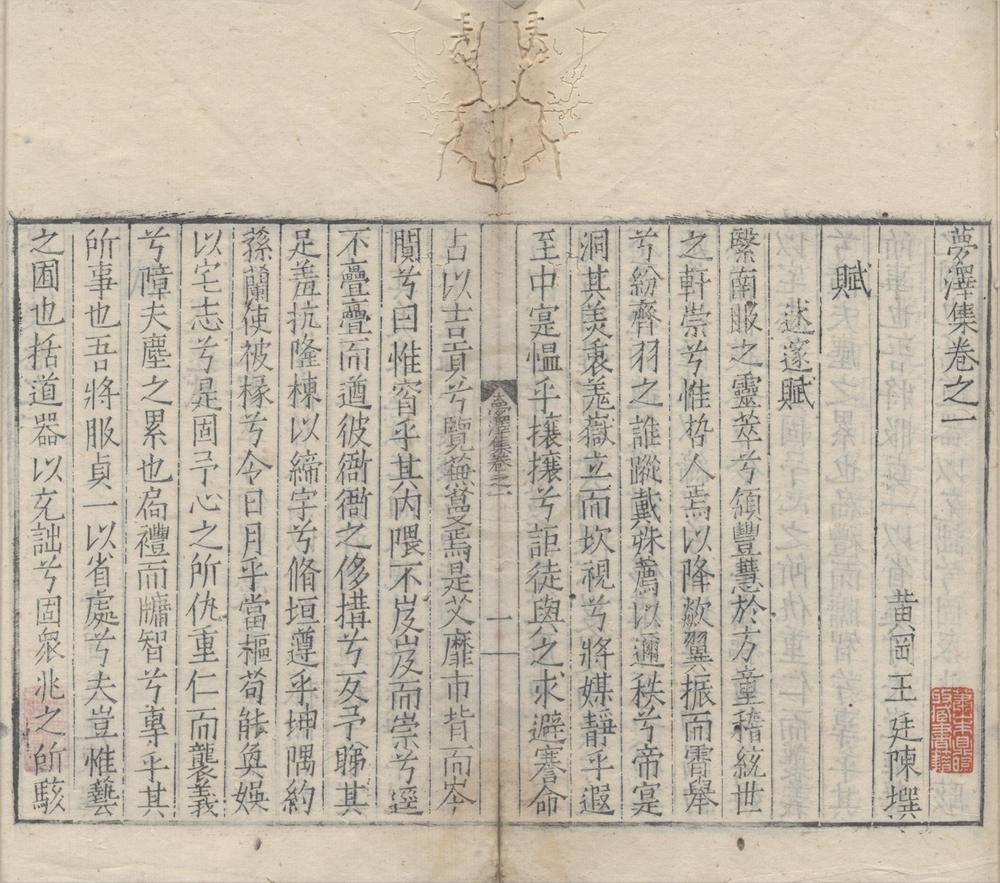 夢澤集卷之一
黃岡王廷陳撰
賦
述邃賦
繄南服之靈萃兮領豐慧於方童稽統世
之軒崇兮惟哲人焉以降歛翼振而霄舉
兮紛齊羽之誰蹤戴殊薦以邇秩兮帝寔
洞其美衷羌嶽立而坎視兮將媒靜乎遐
至中寔慍乎攘攘兮詎徒與之求避謇命
占以吉貢兮覽蕪蒿焉是艾靡市背而岑
閴兮曰惟窅乎其內隈不岌岌而崇兮逕
不疊疊而遒彼衙衙之侈搆兮反予睇其
足羞抗隆棟以締宇兮脩垣遵乎坤隅約
蓀蘭使被椽兮令日月乎當樞苟能奐娛
以宅志兮是固予心之所仇重仁而襲義
兮障夫塵之累也扄禮而牗智兮專乎其
所事也吾將服貞一以省處兮夫豈惟藝
之囿也括道器以充詘兮固衆兆之所駭
夢澤集卷之一
一